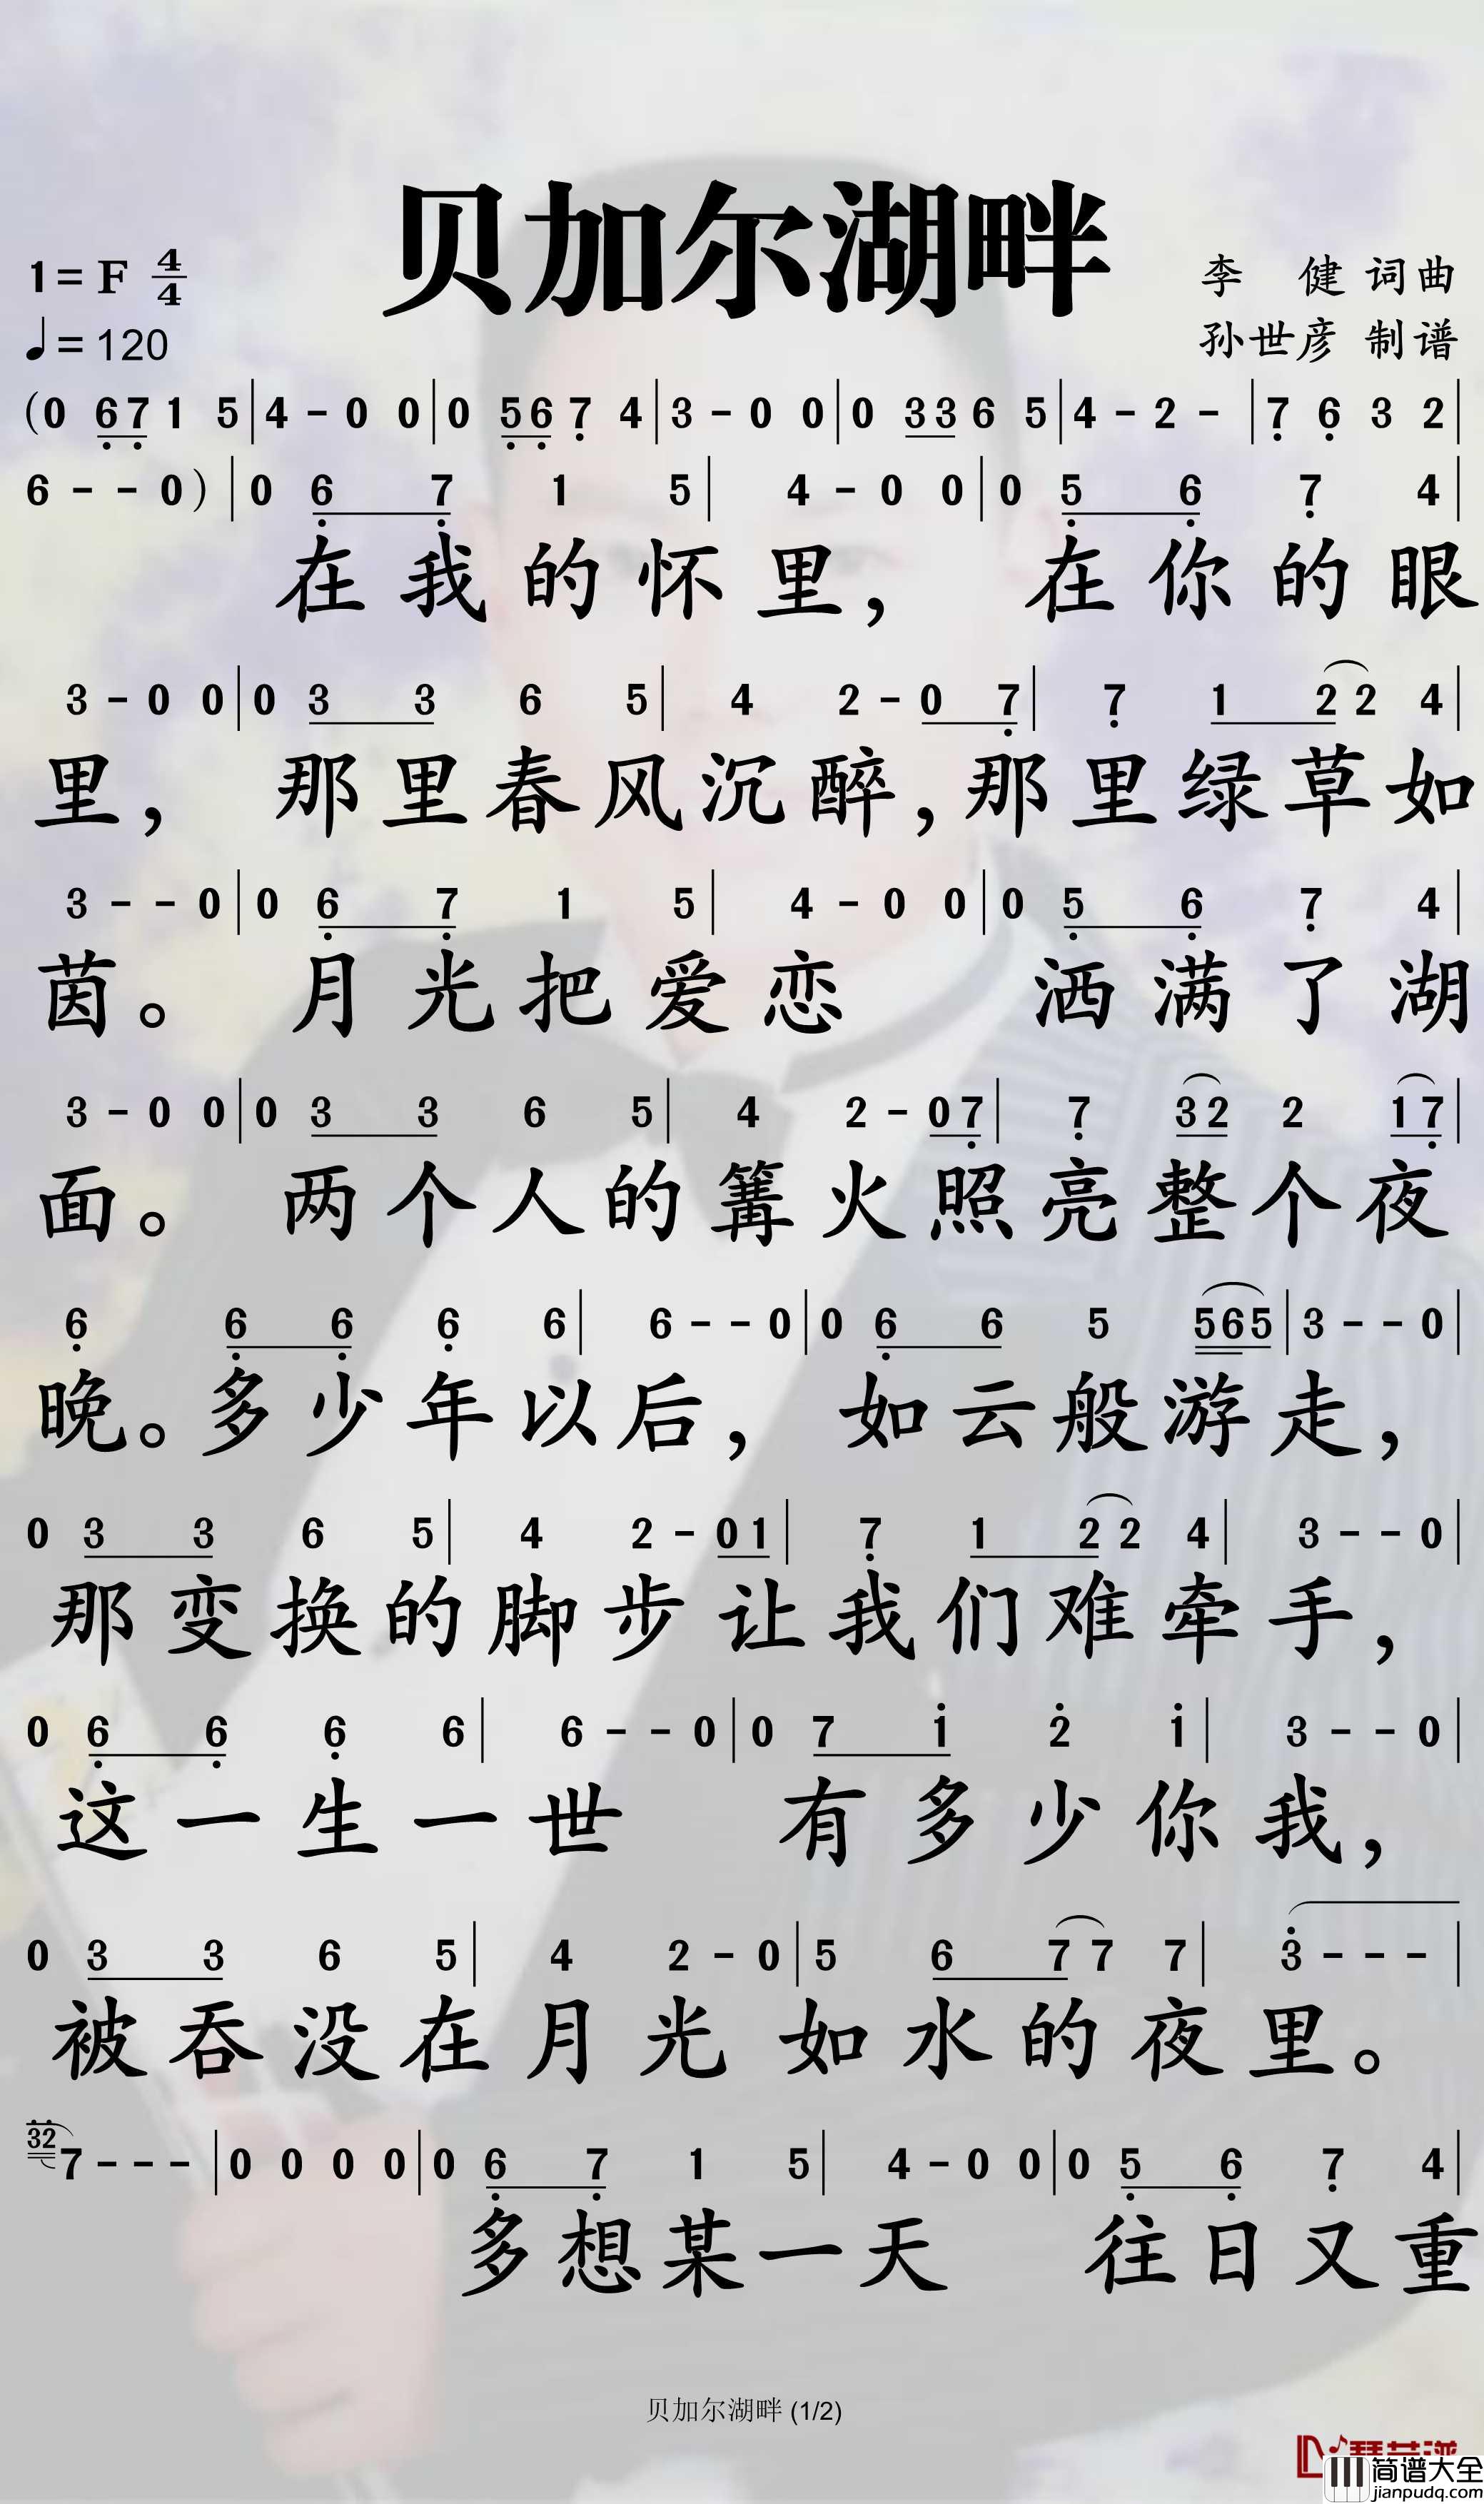 贝加尔湖畔
1=F 4/4
♩=120
李 健 词曲
孙世彦 制谱
(0 6̣7̣ 1 5|4 - 0 0|0 5̣6̣ 7̣ 4|3 - 0 0|0 33 6 5|4 - 2 -|7̣ 6̣ 3 2|
6 - - 0)|0 6̣ 7̣ 1 5|4 - 0 0|0 5̣ 6̣ 7̣ 4|
在我的怀里, 在你的眼
3 - 0 0|0 3 3 6 5|4 2 - 0 7̣|7̣ 1 2 2 4|
里, 那里春风沉醉,那里绿草如
3 - - 0|0 6̣ 7̣ 1 5|4 - 0 0|0 5̣ 6̣ 7̣ 4|
茵。 月光把爱恋 洒满了湖
3 - 0 0|0 3 3 6 5|4 2 - 0 7̣|7̣ 3 2 2 1 7̣|
面。 两个人的篝火照亮整个夜
6̣ 6̣ 6̣ 6̣ 6|6 - - 0|0 6̣ 6 5 565|3 - - 0|
晚。多少年以后, 如云般游走,
0 3 3 6 5|4 2 - 0 1|7̣ 1 2 2 4|3 - - 0|
那变换的脚步让我们难牵手,
0 6̣ 6̣ 6̣ 6|6 - - 0|0 7 1̇ 2̇ 1̇|3 - - 0|
这一生一世 有多少你我,
0 3 3 6 5|4 2 - 0|5 6 7 7 7|3̇ - - -|
被吞没在月光如水的夜里。
3̇2̇ 7 - - -|0 0 0 0|0 6̣ 7̣ 1 5|4 - 0 0|0 5̣ 6̣ 7̣ 4|
多想某一天 往日又重
贝加尔湖畔 (1/2)
简谱大全
jianpudq.com